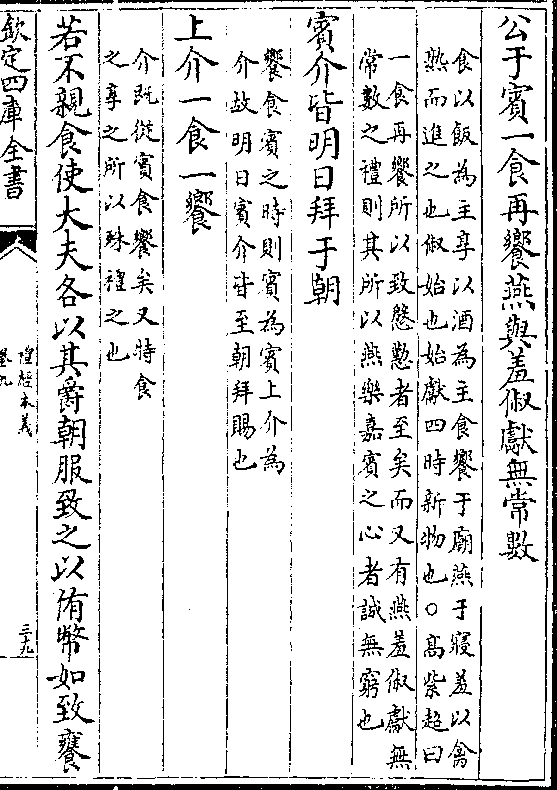 公于賓一食再饗燕與羞俶獻無常數
食以飯為主享以酒為主食饗于廟燕于寝羞以禽
熟而進之也俶始也始獻四時新物也○髙紫超曰
一食再饗所以致慇懃者至矣而又有燕羞俶獻無
常數之禮則其所以燕樂嘉賓之心者誠無窮也
賓介皆明日拜于朝
饗食賓之時則賓為賓上介為
介故明日賓介皆至朝拜賜也
上介一食一饗
介既從賓食饗矣又特食
之享之所以殊禮之也
若不親食使大夫各以其爵朝服致之以侑幣如致饔
欽定四庫全書
禮經本義
卷九
三十九